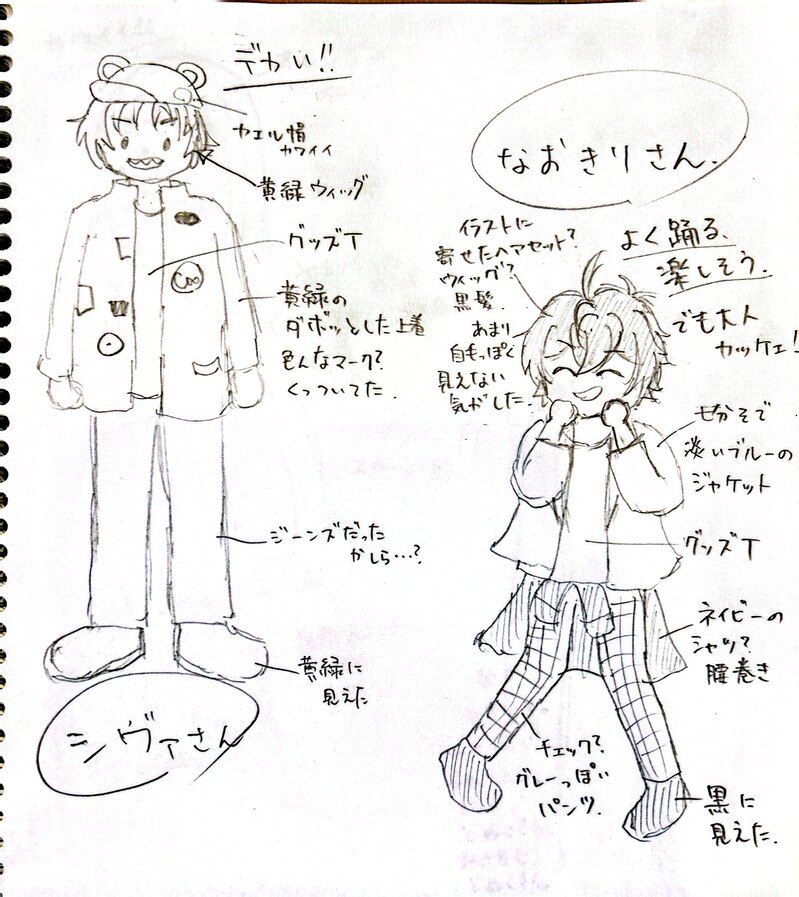 デカい!!
カエル帽
カワイイ
黄緑ウィッグ
グッズT
黄緑の
ダボッとした上着
色んなマーク?
くっついてた.
ジーンズだった
かしら…?
黄緑に
見えた
シヴァさん
なおきりさん.
よく踊る.
楽しそう.
でも大人
カッケェ!
イラストに
寄せたヘアセット?
ウィッグ?
黒髪.
あまり
自毛っぽく
見えない
気がした.
七分そで
淡いブルーの
ジャケット
グッズT
ネイビーの
シャツ?
腰巻き
チェック?
グレーっぽい
パンツ.
黒に
見えた.